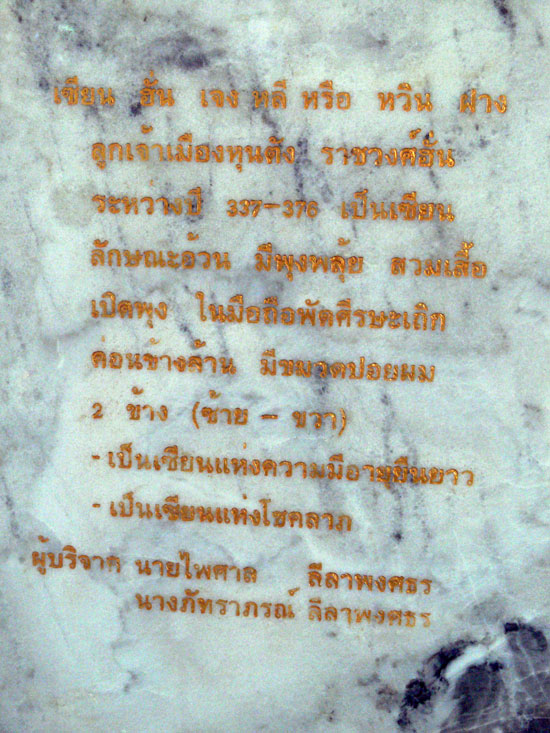 เซียน ฮั่น เจง หลี หรือ หวิน ฝาง
ลูกเจ้าเมืองทุนตัง ราชวงศ์ฮั่น
ระหว่างปี 337-376 เป็นเซียน
ลักษณะอ้วน มีพุงพลุ้ย สวมเสื้อ
เปิดพุง ในมือถือพัดศีรษะเถิก
ค่อนข้างล้าน มีขมวดปอยผม
2 ข้าง (ซ้าย - ขวา)
- เป็นเซียนแห่งความมีอายุยืนยาว
- เป็นเซียนแห่งโชคลาภ
ผู้บริจาค นายไพศาล ลีลาพงศธร
นางภัทราภรณ์ ลีลาพงศธร